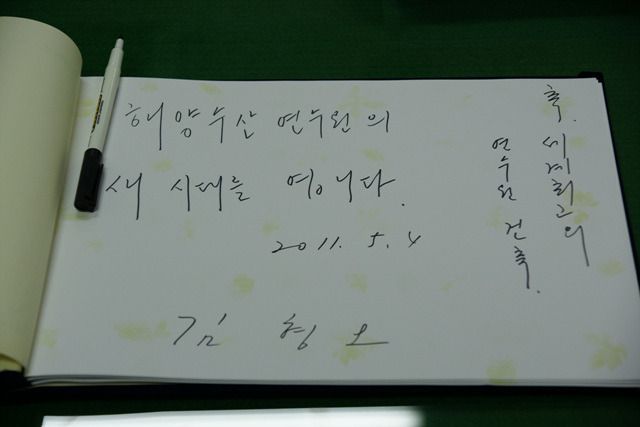 축. 세계최고의
연수원 건축.
해양수산 연수원의
새 시대를 엽니다.
2011. 5. 4
김 형 오